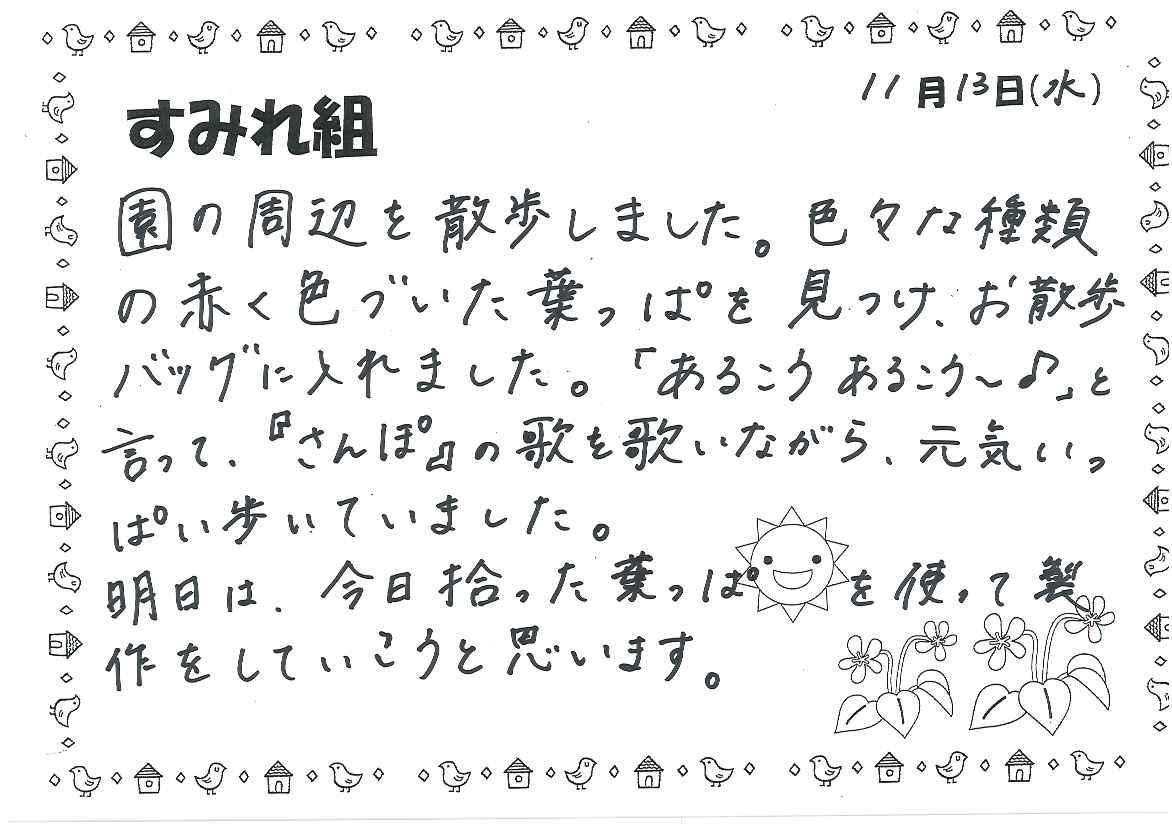 11月13日(水)
すみれ組
園の周辺を散歩しました。色々な種類
の赤く色づいた葉っぱを見つけ、お散歩
バッグに入れました。「あるこうあるこう～♪」と
言って、『さんぽ』の歌を歌いながら、元気いっ
ぱい歩いていました。
明日は、今日拾った葉っぱを使って製
作をしていこうと思います。